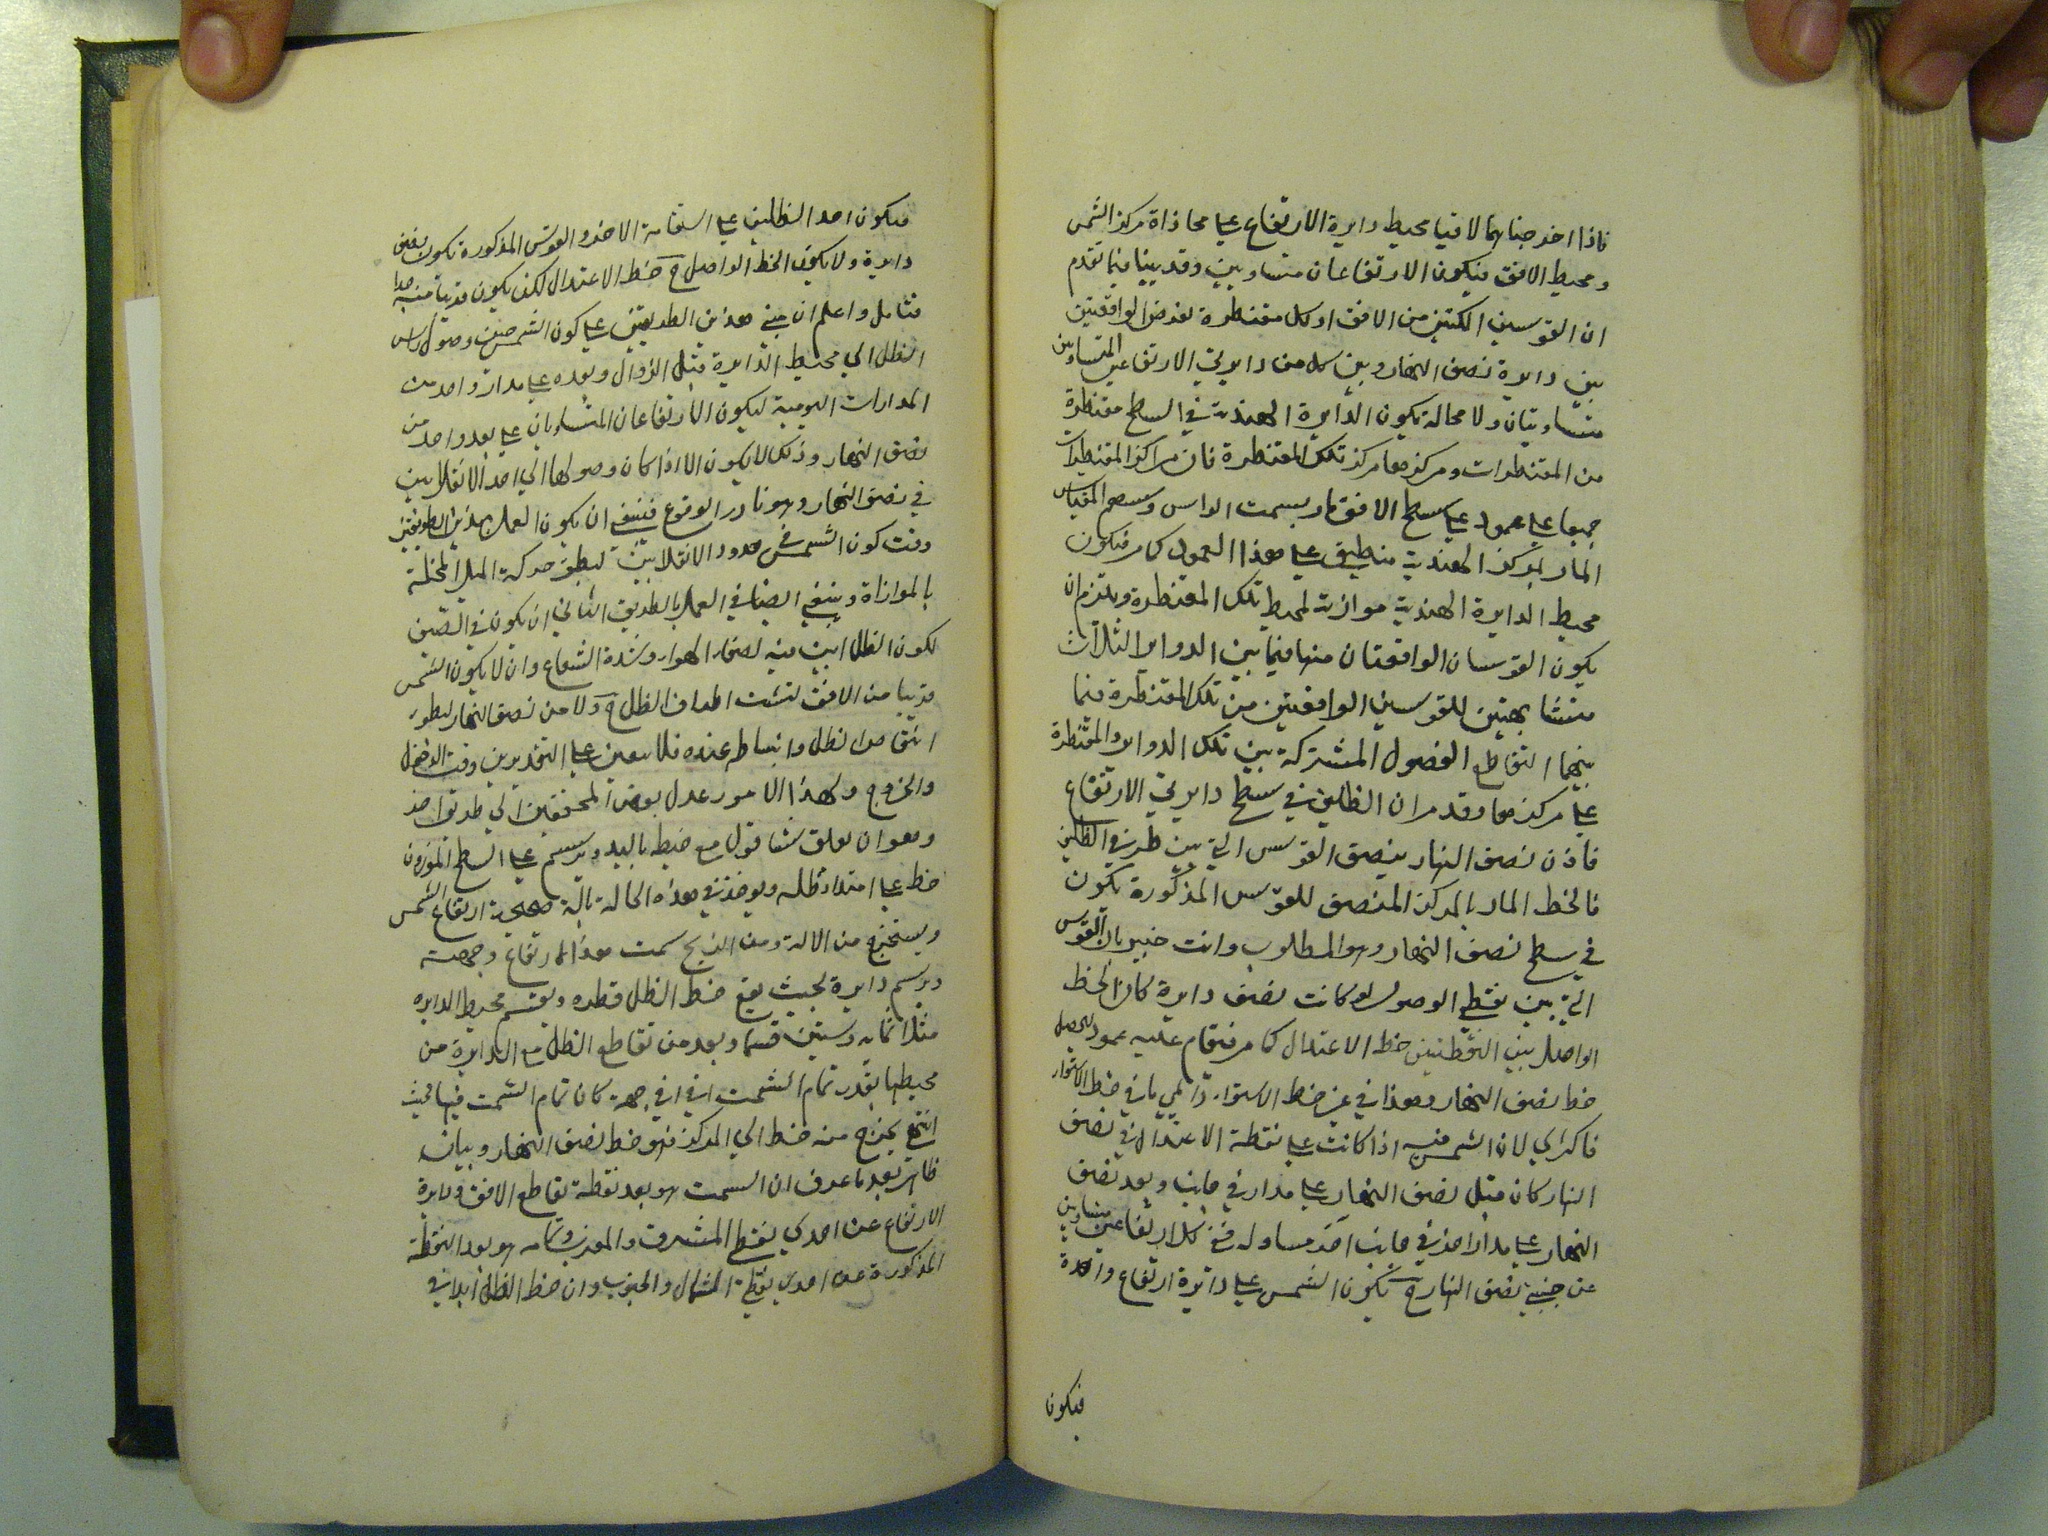 فاذا اخرجناهما لاقيا محيط دايرة الارتفاع على محاذاة مركز الشمس
ومحيط الافق فيكون الارتفاعان متساويين وقد بينا فيما تقدم
ان القوسين الكئتين من الافق او كل مقنطرة تفرض الواقعتين
بين دايرة نصف النهار وبين كل من دايرتي الارتفاعين المتساويين
متساويتان ولا محالة تكون الدايرة الهندية في السطح مقنطرة
من المقنطرات ومركزها مركز تلك المقنطرة فان مراكز المقنطرات
جميعا على عمود على سطح الافق مار بسمت الراس وسهم المقياس
المار بمركز الهندية منطبق على هذا العمود كما مر فيكون
محيط الدايرة الهندية موازية لمحيط تلك المقنطرة ويلتزم ان
يكون القوسان الواقعتان منها فيما بين الدواير الثلاث
متشابهتين للقوسين الواقعتين من تلك المقنطرة فيما
بينهما لتقاطع الفصول المشتركة بين تلك الدواير والمقنطرة
على مركزها وقد مر ان الظلين في سطح دايرتي الارتفاع
فاذن نصف النهار ينصف القوس التي بين طرفي الظلين
فالخط المار بالمركز المنصف للقوس المذكورة يكون
في سطح نصف النهار وهو المطلوب وانت خبير بان القوس
التي بين نقطتي الوصول لو كانت نصف دايرة كان الخط
الواصل بين النقطتين خط الاعتدال كما مر فيقام عليه عمود ليحصل
خط نصف النهار وهذا في غير خط الاستواء دائمي واما في خط الاستواء
فاكثري لان الشمس فيه اذا كانت على نقطة الاعتدال في نصف
النهار كان قبل نصف النهار على مدار في جانب وبعد نصف
النهار على مدار اخر في جانب اخر مساو له ففي كل ارتفاعين متساويين
عن جنبتي نصف النهار ح تكون الشمس على دايرة ارتفاع واحدة
فيكون
فيكون احد الظلين على استقامة الاخر والقوس المذكورة تكون نصف
دايرة ولا يكون الخط الواصل ح خط الاعتدال لكنه يكون قريبا منه جدا
فتامل واعلم ان مبنى هذين الطريقين على كون الشمس حين وصول راس
الظل الى محيط الدايرة قبل الزوال وبعده على مدار واحد من
المدارات اليومية ليكون الارتفاعان المتساويان على بعد واحد من
نصف النهار وذلك لا يكون الا اذا كان وصولها الى احد الانقلابين
في نصف النهار وهو نادر الوقوع فينبغي ان يكون العمل بهذين الطريقين
وقت كون الشمس في حدود الانقلابين لبطؤ حركة الميل المخلة
بالموازاة وينبغي ايضا في العمل بالطريق الثاني ان يكون في الصيف
لكون الظل ابين فيه لصفاء الهواء وشدة الشعاع وان لا يكون الشمس
قريبا من الافق لتشتت اطراف الظل ح ولا من نصف النهار لبطؤ
انتقاص الظل وانبساطه عنده فلا يتعين على التقديرين وقت الدخول
والخروج ولهذا الامور عدل بعض المحققين الى طريق اخر
وهو ان يعلق شاقول مع خيطه باليد ويرسم على السطح الموزون
خط على امتداد ظله ويوخذ في هذه الحالة بالة صحيحة ارتفاع الشمس
ويستخرج من الالة ومن الزيج سمت هذا الارتفاع وجهته
ويرسم دايرة بحيث يقع خط الظل قطره ويقسم محيط الدايره
مثلثمائه وستين قسما ويعد من تقاطع الظل مع الدايرة من
محيطها بقدر تمام السمت في اي جهة كان تمام السمت فيها فحيث
انتهى يخرج منه خط الى المركز فهو خط نصف النهار وبيانه
ظاهر بعد ما عرف ان السمت هو بعد نقطة تقاطع الافق ودايرة
الارتفاع عن احدى نقطتي المشرق والمغرب وتمامه هو بعد النقطة
المذكورة عن احدى نقطتي الشمال والجنوب وان خط الظل ابدا في